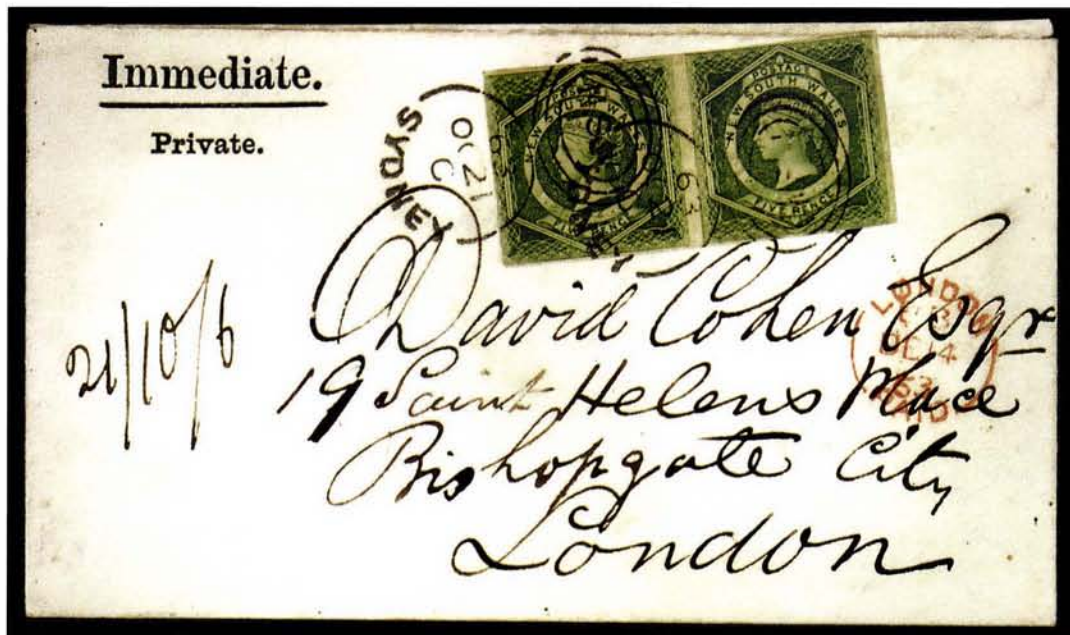 Immediate.
Private.
POSTAGE
NEW SOUTH WALES
FIVE PENCE
POSTAGE
NEW SOUTH WALES
FIVE PENCE
SYDNEY
C
OC 21
63
63
21/10/6
David Cohen Esqr
19 Saint Helens Place
Bishopgate City
London
LONDON
DE 14
63
PAID